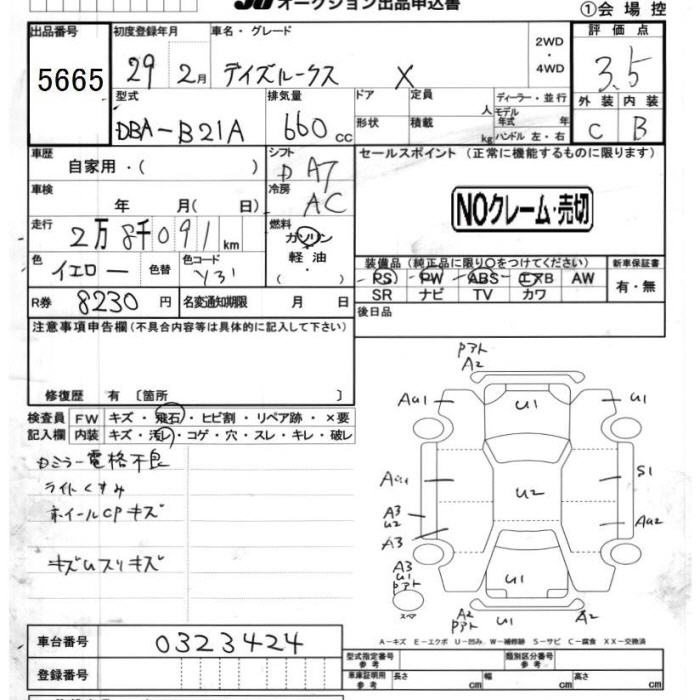 オークション出品申込書
①会場控
出品番号 初度登録年月 車名・グレード 2WD・4WD 評価点
5665 29 2月 デイズルークス X 3.5
型式 排気量 ドア 定員 人 ディーラー・並行 外装 内装
DBA-B21A 660cc 形状 積載 kg モデル年式 年 C B
ハンドル 左・右
車歴 シフト セールスポイント (正常に機能するものに限ります)
自家用・( ) D A7
車検 冷房
年 月( 日) AC
NOクレーム・売切
走行 燃料
2万8千091km ガソリン・軽油
色 色替 色コード 装備品(純正品に限り○をつけてください) 新車保証書
イエロー Y31 PS PW ABS エアB AW 有・無
SR ナビ TV カワ
R券 8230円 名変通知期限 月 日 後日品
注意事項申告欄(不具合内容等は具体的に記入して下さい)
修復歴 有〔箇所 〕
検査員 FW キズ・飛石・ヒビ割・リペア跡・×要
記入欄 内装 キズ・汚レ・コゲ・穴・スレ・キレ・破レ
ミラー電格不良
ライトくすみ
ホイールCPキズ
キズUスリキズ
Pアト
A2
AU1 U1 U1
S1
U2
A3
U2 AU2
A3
A3
U1
Pアト U1
スペア
A2
Pアト U1 A2
A-キズ E-エクボ U-凹み W-補修跡 S-サビ C-腐食 XX-交換済
車台番号 0323424
型式指定番号 参考 類別区分番号 参考
登録番号 車庫証明用 参考 長さ cm 幅 cm 高さ cm